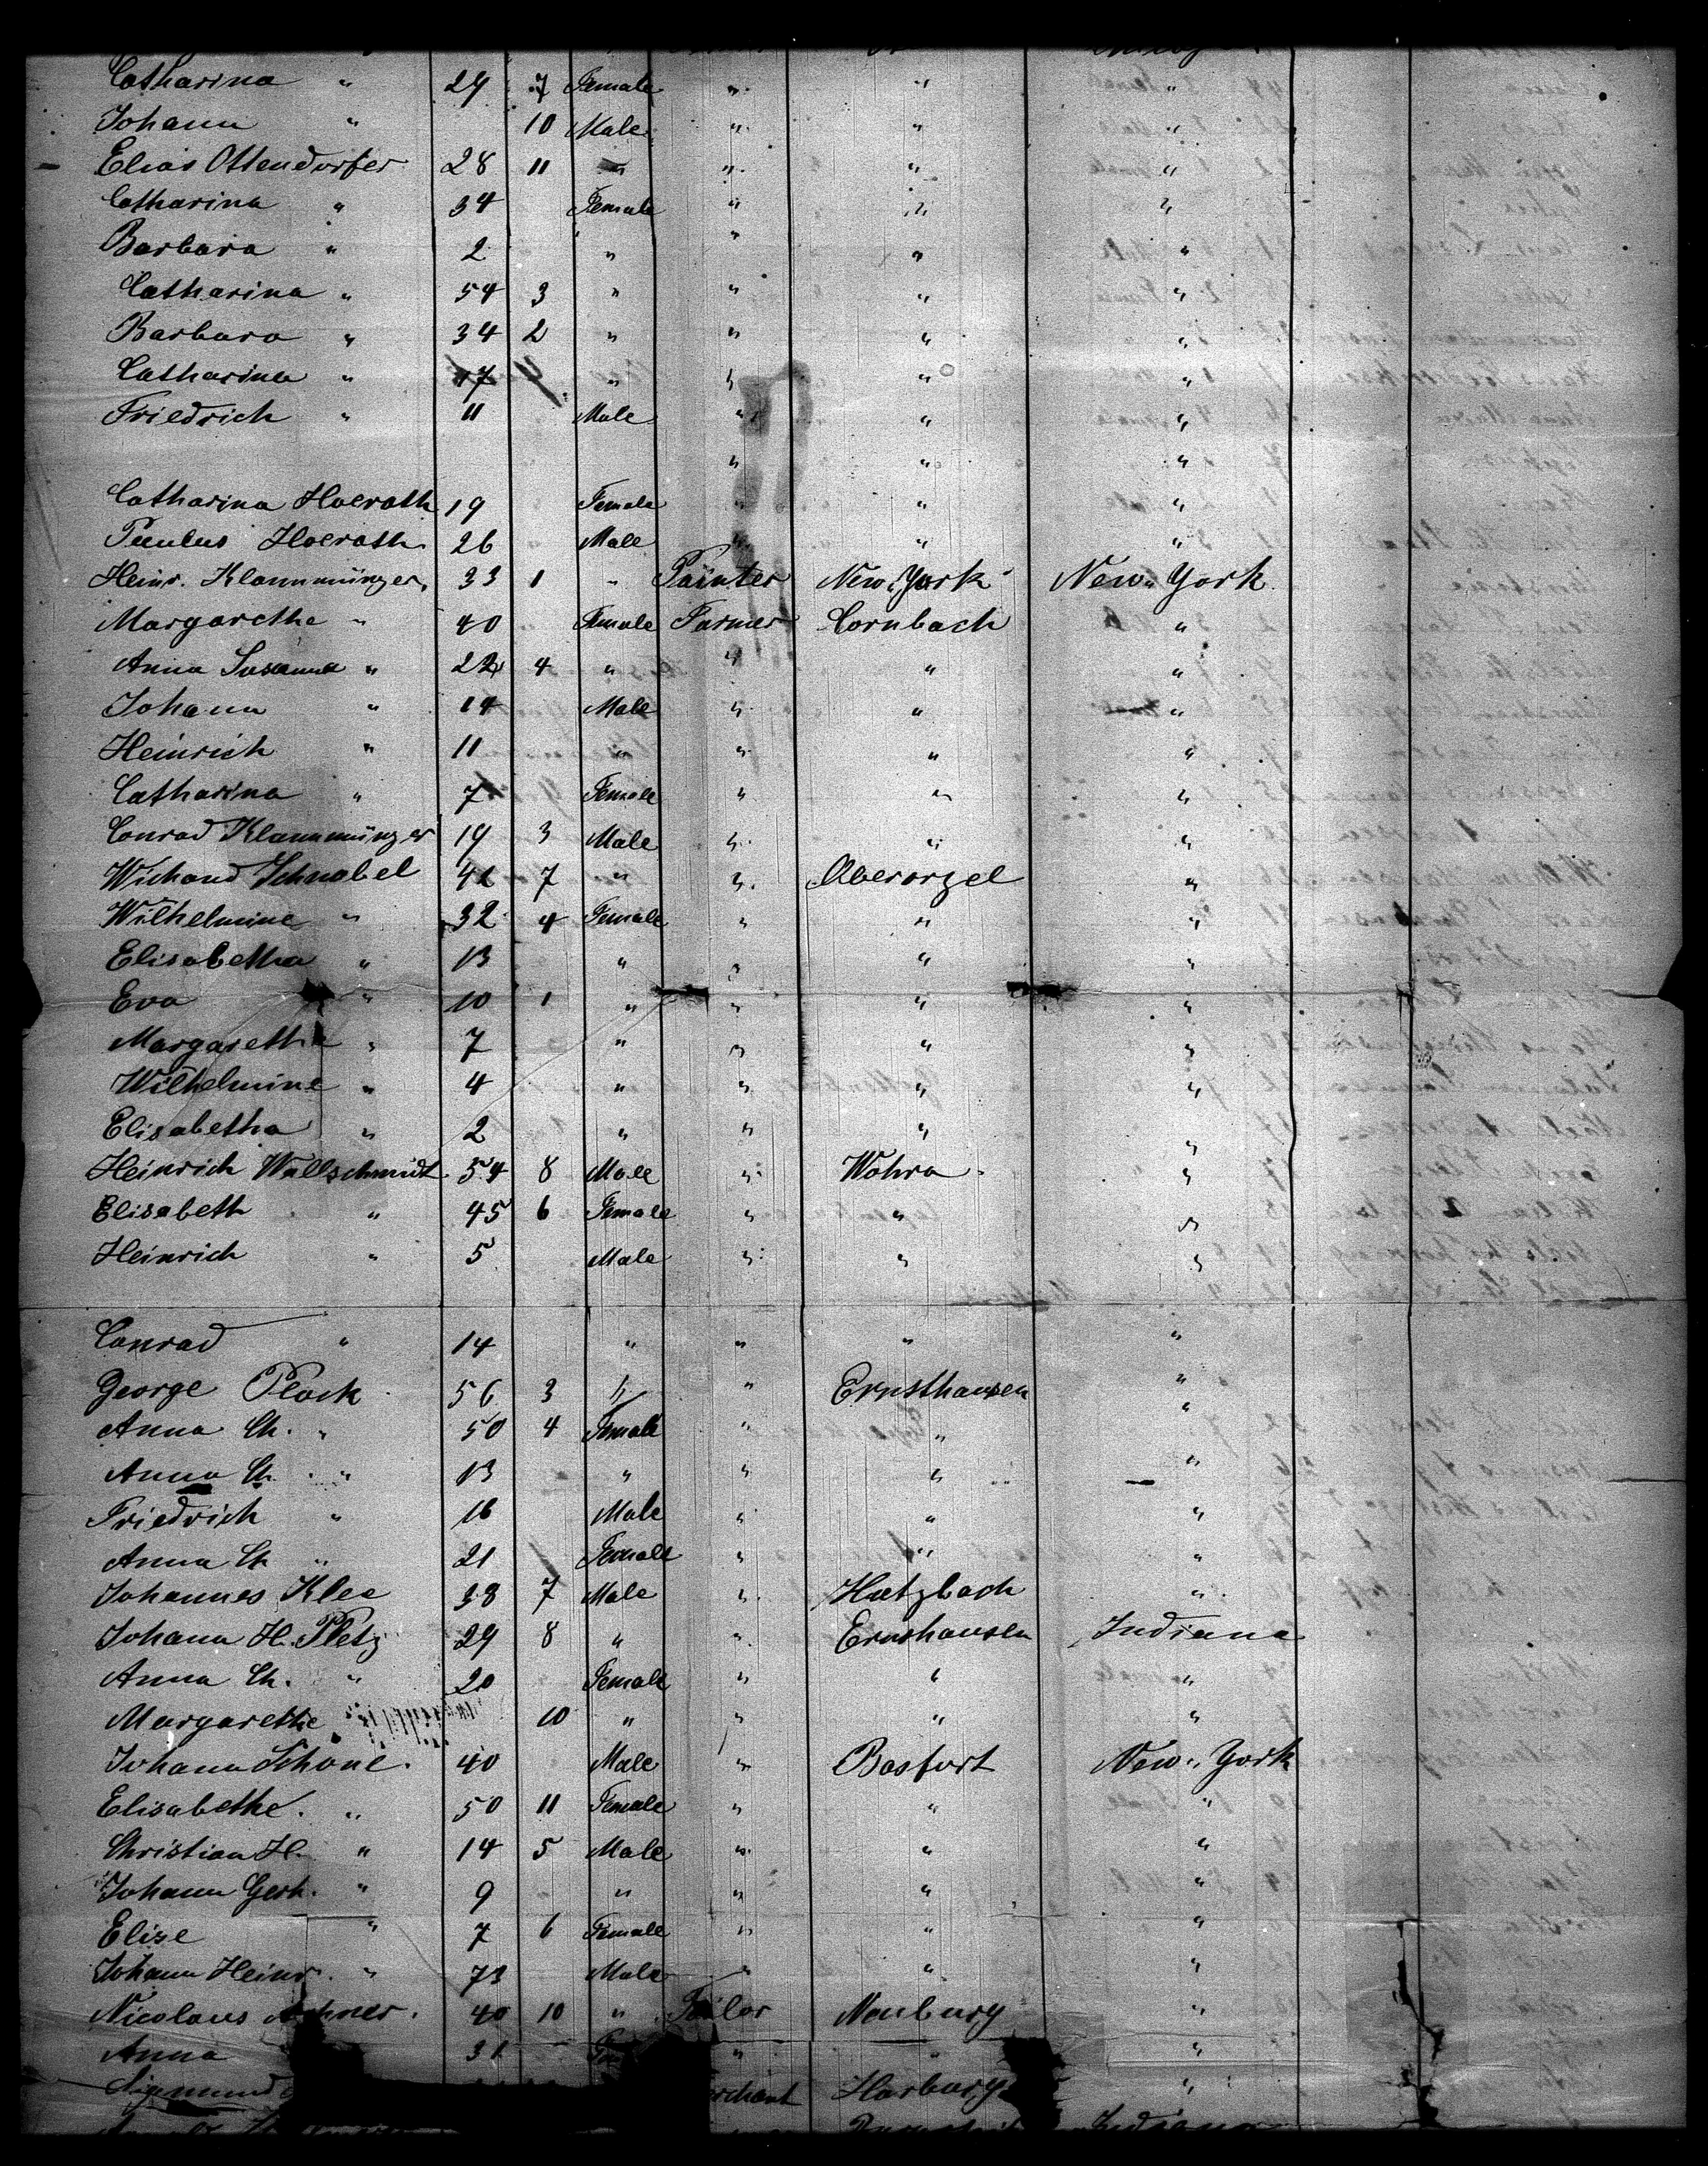 Catharina " 29 7 Female " " "
Johann " 10 Male " " "
Elias Ottendorfer 28 11 " " " "
Catharina " 34 Female " " "
Barbara " 2 " " " "
Catharina " 54 3 " " " "
Barbara " 34 2 " " " "
Catharina " 17 " " " "
Friedrich " 11 Male " " "
" " "
Catharina Hoerath 19 Female " " "
Paulus Hoerath 26 Male " " "
Heinr. Klammünzer 33 1 " Painter New York New York
Margarethe " 40 Female Farmer Cornbach "
Anna Susanna " 22 4 " " " "
Johann " 14 Male " " "
Heinrich " 11 " " " "
Catharina " 7 Female " " "
Conrad Klammünzer 19 3 Male " " "
Wichand Schnabel 42 7 " " Oberorzel "
Wilhelmine " 32 4 Female " " "
Elisabetha " 13 " " " "
Eva " 10 1 " " " "
Margaretha " 7 " " " "
Wilhelmine " 4 " " " "
Elisabetha " 2 " " " "
Heinrich Wallschmidt 54 8 Male " Wohra "
Elisabeth " 45 6 Female " " "
Heinrich " 5 Male " " "
Conrad " 14 " " " "
George Plock 56 3 " " Ernsthausen "
Anna Ch. " 50 4 Female " " "
Anna Ch. " 13 " " " "
Friedrich " 16 Male " " "
Anna Ch " 21 Female " " "
Johannes Klee 38 7 Male " Hatzbach "
Johann H. Pletz 29 8 " " Ernshausen Indiana
Anna Ch. " 20 Female " " "
Margarethe 10 " " " "
Johann Schone. 40 Male " Basfort New York
Elisabethe. " 50 11 Female " " "
Christian H. " 14 5 Male " " "
Johann Gerh. " 9 " " " "
Elise " 7 6 Female " " "
Johann Heinr. " 73 Male " " "
Nicolaus 40 10 " Tailor Neuburg "
Anna 31 " " "
Sigmund Harburg "
Indiana